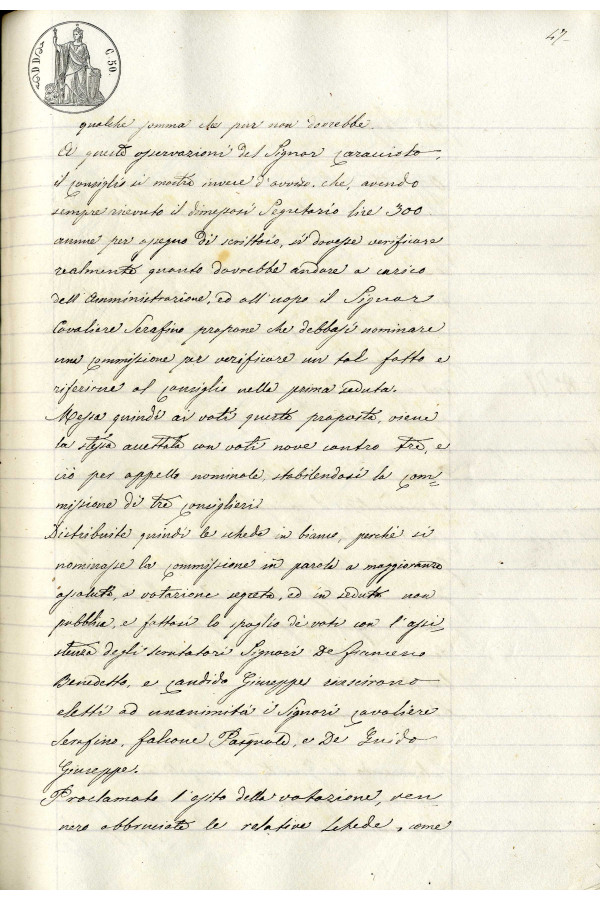 47-
D D
C. 50.
qualche somma che pur non dovrebbe.
Ad queste osservazioni del Signor Caracciolo,
il Consiglio si mostra invece d'avviso, che, avendo
sempre ricevuto il dimessosi Segretario lire 300
annue per assegno di scrittoio, si dovesse verificare
realmente quanto dovrebbe andare a carico
dell'Amministrazione, ed all'uopo il Signor
Cavaliere Serafino propone che debbasi nominare
una Commissione per verificare un tal fatto e
riferirne al Consiglio nella prima seduta.
Messa quindi ai voti questa proposta, viene
la stessa accettata con voti nove contro tre, e
ciò per appello nominale, stabilendosi la Com=
missione di tre Consiglieri
Distribuite quindi le schede in bianco, perchè si
nominasse la Commissione in parola a maggioranza
assoluta, a votazione segreta, ed in seduta non
pubblica, e fattosi lo spoglio di voti con l'assi=
stenza degli scrutatori Signori De
Benedetto, e Candido Giuseppe riuscirono
eletti ad unanimità i Signori Cavaliere
Serafino, Falcone Pasquale, e De Guido
Giuseppe.
Proclamato l'esito della votazione, ven
nero abbruciate le relative schede, come